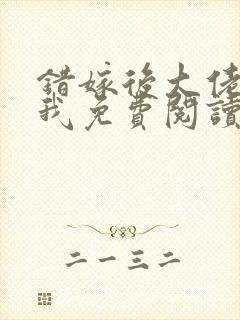 錯嫁後大佬
我免費閱讀
二一三二